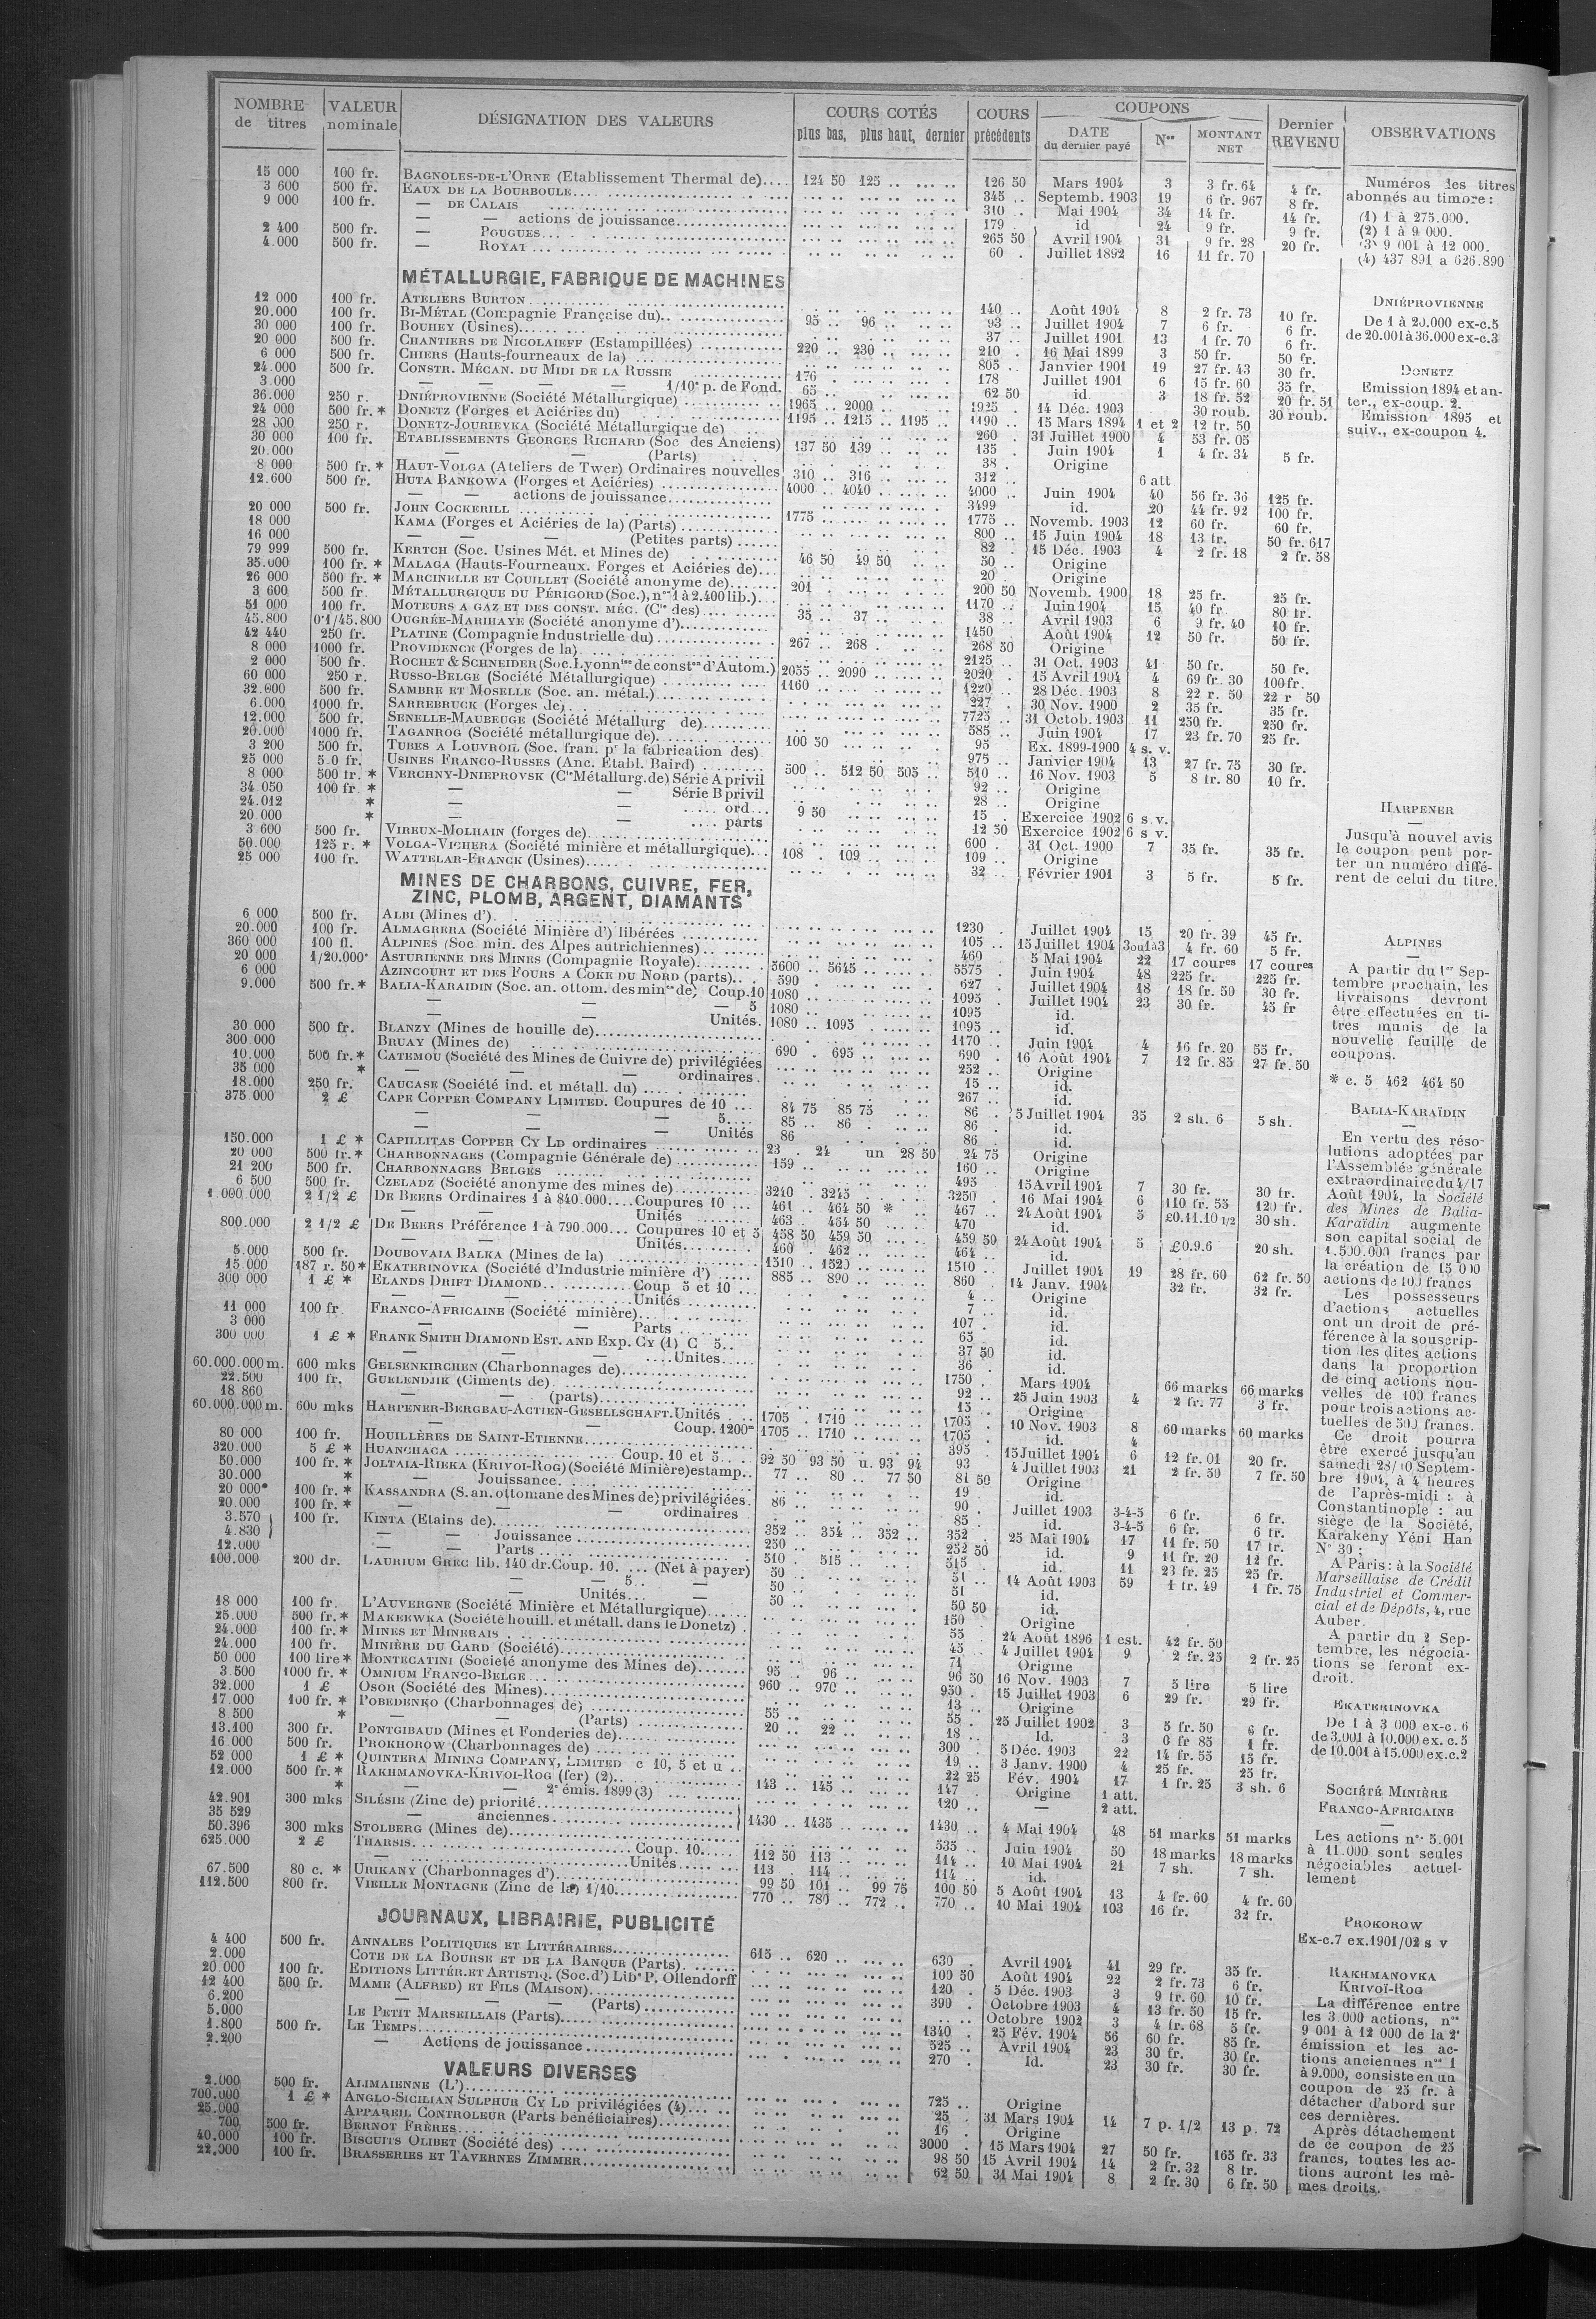 NOMBRE de titres | VALEUR nominale | DÉSIGNATION DES VALEURS | COURS COTÉS plus bas, plus haut, dernier | COURS précédents | COUPONS DATE du dernier payé | Nos | MONTANT NET | Dernier REVENU | OBSERVATIONS
15 000 100 fr. BAGNOLES-DE-L'ORNE (Etablissement Thermal de).... 124 50 125 .. 126 50 Mars 1904 3 3 fr. 64 4 fr.
3 600 500 fr. EAUX DE LA BOURBOULE 345 .. Septemb. 1903 19 6 fr. 967 8 fr.
9 000 100 fr. — DE CALAIS 310 .. Mai 1904 34 14 fr. 14 fr.
— — actions de jouissance 179 . id 24 9 fr. 9 fr.
2 400 500 fr. — POUGUES 265 50 Avril 1904 31 9 fr. 28 20 fr.
4.000 500 fr. — ROYAT 60 . Juillet 1892 16 11 fr. 70
MÉTALLURGIE, FABRIQUE DE MACHINES
12 000 100 fr. ATELIERS BURTON 140 .. Août 1904 8 2 fr. 73 10 fr.
20.000 100 fr. BI-MÉTAL (Compagnie Française du) 95 .. 96 .. 93 .. Juillet 1904 7 6 fr. 6 fr.
30 000 100 fr. BOUHEY (Usines) 37 .. Juillet 1901 13 1 fr. 70 6 fr.
20 000 500 fr. CHANTIERS DE NICOLAIEFF (Estampillées) 220 .. 230 .. 210 . 16 Mai 1899 3 50 fr. 50 fr.
6 000 500 fr. CHIERS (Hauts-fourneaux de la) 805 .. Janvier 1901 19 27 fr. 43 30 fr.
24.000 500 fr. CONSTR. MÉCAN. DU MIDI DE LA RUSSIE 176 . 178 Juillet 1901 6 15 fr. 60 35 fr.
3.000 — — — — 1/10e p. de Fond. 65 .. 62 50 id. 3 18 fr. 52 20 fr. 51
36.000 250 r. DNIÉPROVIENNE (Société Métallurgique) 1965 .. 2000 .. 1925 . 14 Déc. 1903 30 roub. 30 roub.
24 000 500 fr. * DONETZ (Forges et Aciéries du) 1195 .. 1215 .. 1195 .. 1190 .. 15 Mars 1894 1 et 2 12 fr. 50
28 000 250 r. DONETZ-JOURIEVKA (Société Métallurgique de) 260 . 31 Juillet 1900 4 53 fr. 05
30 000 100 fr. ETABLISSEMENTS GEORGES RICHARD (Soc des Anciens) 137 50 139 .. 135 . Juin 1904 1 4 fr. 34 5 fr.
20.000 — — (Parts) 38 . Origine
8 000 500 fr. * HAUT-VOLGA (Ateliers de Twer) Ordinaires nouvelles 310 .. 316 .. 312 .. 6 att
12.600 500 fr. HUTA BANKOWA (Forges et Aciéries) 4000 .. 4040 .. 4000 .. Juin 1904 40 56 fr. 36 125 fr.
— — actions de jouissance 3499 id. 20 44 fr. 92 100 fr.
20 000 500 fr. JOHN COCKERILL 1775 .. 1775 .. Novemb. 1903 12 60 fr. 60 fr.
18 000 KAMA (Forges et Aciéries de la) (Parts) 800 .. 15 Juin 1904 18 13 fr. 50 fr. 617
16 000 — — — (Petites parts) 82 . 15 Déc. 1903 4 2 fr. 18 2 fr. 58
79 999 500 fr. KERTCH (Soc. Usines Mét. et Mines de) 46 50 49 50 50 .. Origine
35.000 100 fr. * MALAGA (Hauts-Fourneaux. Forges et Aciéries de) 20 . Origine
26 000 500 fr. * MARCINELLE ET COUILLET (Société anonyme de) 201 . 200 50 Novemb. 1900 18 25 fr. 25 fr.
3 600 500 fr. MÉTALLURGIQUE DU PÉRIGORD (Soc.), nos 1 à 2.400 lib.) 1170 .. Juin 1904 15 40 fr. 80 fr.
51 000 100 fr. MOTEURS A GAZ ET DES CONST. MÉC. (Cie des) 35 .. 37 .. 38 .. Avril 1903 6 9 fr. 40 10 fr.
45.800 0'1/45.800 OUGRÉE-MARIHAYE (Société anonyme d') 1450 . Août 1904 12 50 fr. 50 fr.
42 440 250 fr. PLATINE (Compagnie Industrielle du) 267 .. 268 . 268 50 Origine
8 000 1000 fr. PROVIDENCE (Forges de la) 2125 .. 31 Oct. 1903 41 50 fr. 50 fr.
2 000 500 fr. ROCHET & SCHNEIDER (Soc. Lyonnise de conston d'Autom.) 2055 .. 2090 .. 2020 . 15 Avril 1904 4 69 fr. 30 100 fr.
60 000 250 r. RUSSO-BELGE (Société Métallurgique) 1160 .. 1220 .. 28 Déc. 1903 8 22 r. 50 22 r 50
32.000 500 fr. SAMBRE ET MOSELLE (Soc. an. métal.) 227 . 30 Nov. 1900 2 35 fr. 35 fr.
6.000 1000 fr. SARREBRUCK (Forges de) 7725 .. 31 Octob. 1903 11 250 fr. 250 fr.
12.000 500 fr. SENELLE-MAUBEUGE (Société Métallurg de) 585 .. Juin 1904 17 23 fr. 70 25 fr.
20.000 1000 fr. TAGANROG (Société métallurgique de) 100 50 95 Ex. 1899-1900 4 s. v.
3 200 500 fr. TUBES A LOUVROIL (Soc. fran. pr la fabrication des) 975 .. Janvier 1904 13 27 fr. 75 30 fr.
25 000 5.0 fr. USINES FRANCO-RUSSES (Anc. Etabl. Baird) 500 .. 512 50 505 .. 510 .. 16 Nov. 1903 5 8 fr. 80 10 fr.
8 000 500 fr. * VERCHNY-DNIEPROVSK (Cie Métallurg. de) Série A privil 92 .. Origine
34 050 100 fr. * — — Série B privil 28 .. Origine
24.012 * — — ord... 9 50 15 . Exercice 1902 6 s. v.
20 000 * — — parts 12 50 Exercice 1902 6 s v.
3 600 500 fr. VIREUX-MOLHAIN (forges de) 600 . 31 Oct. 1900 7 35 fr. 35 fr.
50.000 125 r. * VOLGA-VICHERA (Société minière et métallurgique) 108 . 109 .. 109 .. Origine
25 000 100 fr. WATTELAR-FRANCK (Usines) 32 .. Février 1901 3 5 fr. 5 fr.
MINES DE CHARBONS, CUIVRE, FER,
ZINC, PLOMB, ARGENT, DIAMANTS
6 000 500 fr. ALBI (Mines d') 1230 . Juillet 1904 15 20 fr. 39 45 fr.
20.000 100 fr. ALMAGRERA (Société Minière d') libérées 105 .. 15 Juillet 1904 3 ou 1 à 3 4 fr. 60 5 fr.
360 000 100 fl. ALPINES (Soc. min. des Alpes autrichiennes) 460 . 5 Mai 1904 22 17 coures 17 coures
20 000 1/20.000e ASTURIENNE DES MINES (Compagnie Royale) 5600 .. 5645 .. 5575 . Juin 1904 48 225 fr. 225 fr.
6 000 AZINCOURT ET DES FOURS A COKE DU NORD (parts) 590 . 627 . Juillet 1904 18 18 fr. 50 30 fr.
9.000 500 fr. * BALIA-KARAIDIN (Soc. an. ottom. des mines de) Coup. 10 1080 .. 1095 . Juillet 1904 23 30 fr. 45 fr
— — — 5 1080 .. 1095 id.
— — Unités. 1080 .. 1095 . 1095 .. id.
30 000 500 fr. BLANZY (Mines de houille de) 1170 .. Juin 1904 4 16 fr. 20 55 fr.
300 000 BRUAY (Mines de) 690 . 695 .. 690 . 16 Août 1904 7 12 fr. 85 27 fr. 50
10.000 500 fr. * CATEMOU (Société des Mines de Cuivre de) privilégiées 252 .. Origine
35 000 * — — — ordinaires 15 .. id.
18.000 250 fr. CAUCASE (Société ind. et métall. du) 267 .. id.
375.000 2 £ CAPE COPPER COMPANY LIMITED. Coupures de 10 84 75 85 75 86 . 5 Juillet 1904 35 2 sh. 6 5 sh.
— — — 5 85 .. 86 . 86 . id.
— — — Unités 86 86 . id.
150.000 1 £ * CAPILLITAS COPPER CY LD ordinaires 23 . 24 un 28 50 24 75 Origine
20 000 500 fr. * CHARBONNAGES (Compagnie Générale de) 159 .. 160 .. Origine
21 200 500 fr. CHARBONNAGES BELGES 495 15 Avril 1904 7 30 fr. 30 fr.
6 500 500 fr. CZELADZ (Société anonyme des mines de) 3240 . 3245 . 3250 . 16 Mai 1904 6 110 fr. 55 120 fr.
1.000.000 2 1/2 £ DE BEERS Ordinaires 1 à 840.000.... Coupures 10 461 .. 464 50 * 467 .. 24 Août 1904 5 £0.11.10 1/2 30 sh.
— — Unités 463 . 464 50 470 id.
800.000 2 1/2 £ DE BEERS Préférence 1 à 790.000... Coupures 10 et 5 458 50 459 50 459 50 24 Août 1904 5 £0.9.6 20 sh.
— — Unités 460 . 462 .. 464 .. id.
5.000 500 fr. DOUBOVAIA BALKA (Mines de la) 1510 .. 1520 .. 1510 .. Juillet 1904 19 28 fr. 60 62 fr. 50
15.000 187 r. 50 * EKATERINOVKA (Société d'Industrie minière d') 885 .. 890 .. 860 . 14 Janv. 1904 32 fr. 32 fr.
300 000 1 £ * ELANDS DRIFT DIAMOND Coup 5 et 10 4 .. Origine
— — — Unités 7 .. id.
11 000 100 fr FRANCO-AFRICAINE (Société minière) 107 . id.
3 000 — — Parts 65 . id.
300 000 1 £ * FRANK SMITH DIAMOND EST. AND EXP. CY (1) C 5 37 50 id.
— — — Unites 36 . id.
60.000.000 m. 600 mks GELSENKIRCHEN (Charbonnages de) 1750 . Mars 1904 66 marks 66 marks
22.500 100 fr. GUELENDJIK (Ciments de) 92 .. 25 Juin 1903 4 2 fr. 77 3 fr.
18 860 — — (parts) 15 .. Origine
60.000.000 m. 600 mks HARPENER-BERGBAU-ACTIEN-GESELLSCHAFT. Unités 1705 . 1710 .. 1705 .. 10 Nov. 1903 8 60 marks 60 marks
— — Coup. 1200m 1705 .. 1710 .. 1705 .. id. 4
80 000 100 fr. HOUILLÈRES DE SAINT-ETIENNE 395 . 15 Juillet 1904 6 12 fr. 01 20 fr.
320.000 5 £ * HUANCHACA Coup. 10 et 5 92 50 93 50 u. 93 94 93 4 Juillet 1903 21 2 fr. 50 7 fr. 50
50.000 100 fr. * JOLTAIA-RIEKA (KRIVOI-ROG) (Société Minière) estamp. 77 .. 80 .. 77 50 81 50 Origine
30.000 * — — Jouissance 19 .. id.
20 000 100 fr. * KASSANDRA (S. an. ottomane des Mines de) privilégiées 86 .. 90 . Juillet 1903 3-4-5 6 fr. 6 fr.
20.000 100 fr. * — — ordinaires 85 . id. 3-4-5 6 fr. 6 fr.
3.570 } 100 fr. KINTA (Etains de) 352 .. 354 .. 352 .. 352 .. 25 Mai 1904 17 11 fr. 50 17 fr.
4.830 } — — Jouissance 250 .. 252 50 id. 9 11 fr. 20 12 fr.
12.000 — — Parts 510 . 515 .. 515 . id. 11 23 fr. 25 25 fr.
100.000 200 dr. LAURIUM GREC lib. 140 dr. Coup. 10 (Net à payer) 50 .. 51 .. 14 Août 1903 59 1 fr. 49 1 fr. 75
— — 5 — 50 .. 51 id.
— — Unités — 50 .. 50 50 id.
18 000 100 fr. L'AUVERGNE (Société Minière et Métallurgique) 150 . Origine
25.000 500 fr. * MAKEEWKA (Société houill. et métall. dans le Donetz) 55 24 Août 1896 1 est. 42 fr. 50
24.000 100 fr. * MINES ET MINERAIS 45 . 4 Juillet 1904 9 2 fr. 25 2 fr. 25
24.000 100 fr. MINIÈRE DU GARD (Société) 71 Origine
50 000 100 lire * MONTECATINI (Société anonyme des Mines de) 95 96 .. 96 50 16 Nov. 1903 7 5 lire 5 lire
3.500 1000 fr. * OMNIUM FRANCO-BELGE 960 .. 970 .. 950 . 15 Juillet 1903 6 29 fr. 29 fr.
32.000 1 £ OSOR (Société des Mines) 13 .. Origine
17.000 100 fr. * POBEDENKO (Charbonnages de) 55 .. 55 . 25 Juillet 1902 3 5 fr. 50 6 fr.
8 500 * — — (Parts) 20 .. 22 .. 18 .. Id. 3 0 fr 85 1 fr.
13.100 300 fr. PONTGIBAUD (Mines et Fonderies de) 300 . 5 Déc. 1903 22 14 fr. 55 15 fr.
16.000 500 fr. PROKHOROW (Charbonnages de) 19 .. 3 Janv. 1900 4 25 fr. 25 fr.
52.000 1 £ * QUINTERA MINING COMPANY, LIMITED c 10, 5 et u 22 25 Fév. 1904 17 1 fr. 25 3 sh. 6
12.000 500 fr. * RAKHMANOVKA-KRIVOI-ROG (fer) (2) 143 .. 145 .. 147 . Origine 1 att.
* — — 2e émis. 1899 (3) 120 .. — 2 att.
42.901 300 mks SILÉSIE (Zinc de) priorité } 1430 .. 1435 .. 1430 .. 4 Mai 1904 48 51 marks 51 marks
35 529 — anciennes }
50.396 300 mks STOLBERG (Mines de) 535 .. Juin 1904 50 18 marks 18 marks
625.000 2 £ THARSIS Coup. 10 112 50 113 .. 114 .. 10 Mai 1904 21 7 sh. 7 sh.
— Unités 113 . 114 .. 114 .. id.
67.500 80 c. * URIKANY (Charbonnages d') 99 50 101 .. 99 75 100 50 5 Août 1904 13 4 fr. 60 4 fr. 60
112.500 800 fr. VIEILLE MONTAGNE (Zinc de la) 1/10 770 .. 780 .. 772 .. 770 .. 10 Mai 1904 103 16 fr. 32 fr.
JOURNAUX, LIBRAIRIE, PUBLICITÉ
4 400 500 fr. ANNALES POLITIQUES ET LITTÉRAIRES 615 .. 620 .. 630 . Avril 1904 41 29 fr. 35 fr.
2.000 COTE DE LA BOURSE ET DE LA BANQUE (Parts) 100 50 Août 1904 22 2 fr. 73 6 fr.
20.000 100 fr. EDITIONS LITTÉR. ET ARTISTIQ. (Soc. d') Libe P. Ollendorff 120 . 5 Déc. 1903 3 9 fr. 60 10 fr.
12 400 500 fr. MAME (ALFRED) ET FILS (MAISON) 390 . Octobre 1903 4 13 fr. 50 15 fr.
6.200 — — — (Parts) Octobre 1902 3 4 fr. 68 5 fr.
5.000 LE PETIT MARSEILLAIS (Parts) 1340 . 25 Fév. 1904 56 60 fr. 85 fr.
1.800 500 fr. LE TEMPS 525 .. Avril 1904 23 30 fr. 30 fr.
2.200 — Actions de jouissance 270 . Id. 23 30 fr. 30 fr.
VALEURS DIVERSES
2.000 500 fr. ALIMAIENNE (L') 725 .. Origine
700.000 1 £ * ANGLO-SICILIAN SULPHUR CY LD privilégiées (4) 25 . 31 Mars 1904 14 7 p. 1/2 13 p. 72
25.000 APPAREIL CONTROLEUR (Parts bénéficiaires) 16 . Origine
700 500 fr. BERNOT FRÈRES 3000 . 15 Mars 1904 27 50 fr. 165 fr. 33
40.000 100 fr. BISCUITS OLIBET (Société des) 98 50 15 Avril 1904 14 2 fr. 32 8 fr.
22.000 100 fr. BRASSERIES ET TAVERNES ZIMMER 62 50 31 Mai 1904 8 2 fr. 30 6 fr. 50
Numéros des titres
abonnés au timbre :
(1) 1 à 275.000.
(2) 1 à 9 000.
(3) 9 001 à 12 000.
(4) 437 891 a 626.890
DNIÉPROVIENNE
De 1 à 20.000 ex-c.5
de 20.001 à 36.000 ex-c.3
DONETZ
Emission 1894 et an-
ter., ex-coup. 2.
Emission 1895 et
suiv., ex-coupon 4.
HARPENER
Jusqu'à nouvel avis
le coupon peut por-
ter un numéro diffé-
rent de celui du titre.
ALPINES
A partir du 1er Sep-
tembre prochain, les
livraisons devront
être effectuées en ti-
tres munis de la
nouvelle feuille de
coupons.
* c. 5 462 464 50
BALIA-KARAÏDIN
En vertu des réso-
lutions adoptées par
l'Assemblée générale
extraordinaire du 4/17
Août 1904, la Société
des Mines de Balia-
Karaïdin augmente
son capital social de
1.500.000 francs par
la création de 15 000
actions de 100 francs
Les possesseurs
d'actions actuelles
ont un droit de pré-
férence à la souscrip-
tion les dites actions
dans la proportion
de cinq actions nou-
velles de 100 francs
pour trois actions ac-
tuelles de 500 francs.
Ce droit pourra
être exercé jusqu'au
samedi 28/10 Septem-
bre 1904, à 4 heures
de l'après-midi : à
Constantinople : au
siège de la Société,
Karakeny Yéni Han
N° 30 ;
A Paris : à la Société
Marseillaise de Crédit
Industriel et Commer-
cial et de Dépôts, 4, rue
Auber.
A partir du 2 Sep-
tembre, les négocia-
tions se feront ex-
droit.
EKATERINOVKA
De 1 à 3 000 ex-c. 6
de 3.001 à 10.000 ex. c. 5
de 10.001 à 15.000 ex. c.2
SOCIÉTÉ MINIÈRE
FRANCO-AFRICAINE
Les actions nos 5.001
à 11.000 sont seules
négociables actuel-
lement
PROKOROW
Ex-c.7 ex.1901/02 s v
RAKHMANOVKA
KRIVOÏ-ROG
La différence entre
les 3.000 actions, nos
9 001 à 12 000 de la 2e
émission et les ac-
tions anciennes nos 1
à 9.000, consiste en un
coupon de 25 fr. à
détacher d'abord sur
ces dernières.
Après détachement
de ce coupon de 25
francs, toutes les ac-
tions auront les mê-
mes droits.